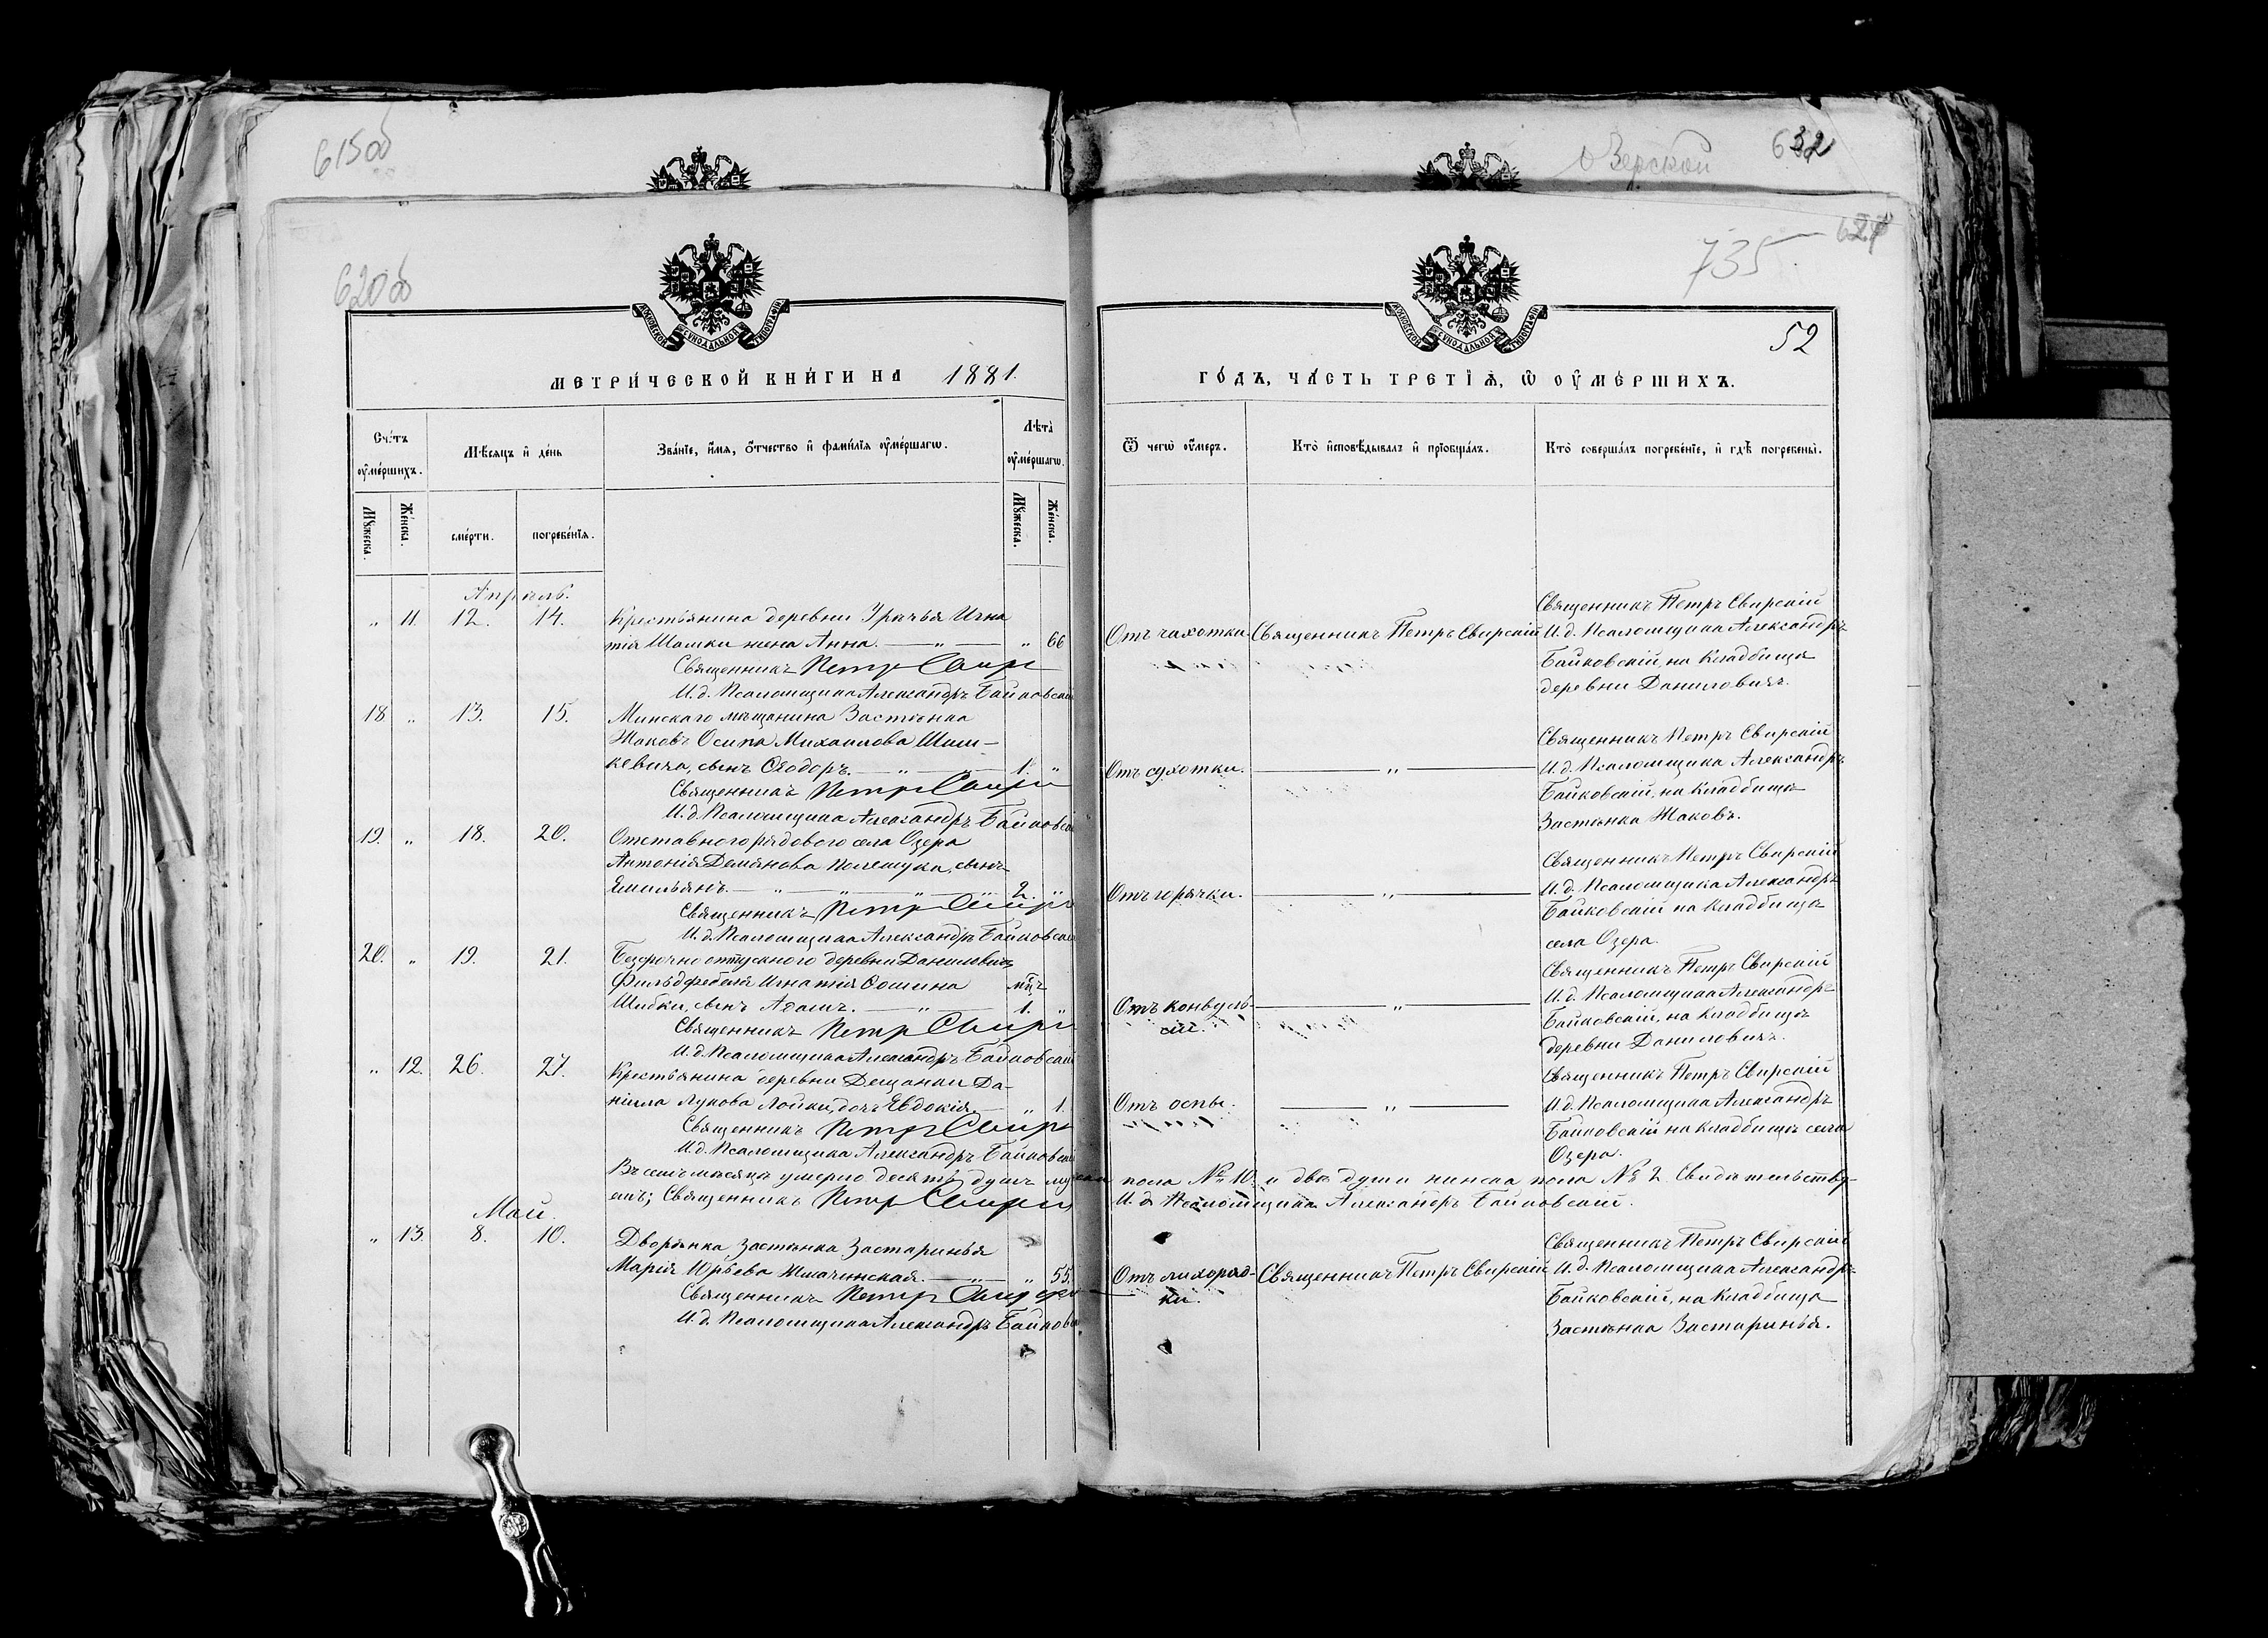 615об
Озерской
632
620об
735
627
МОСКОВСКОЙ СѴНОДАЛЬНОЙ ТИПОГРАФІИ
МОСКОВСКОЙ СѴНОДАЛЬНОЙ ТИПОГРАФІИ
52
МЕТРИ́ЧЕСКОЙ КНИ́ГИ НА 1881.
ГО́ДЪ, ЧА́СТЬ ТРЕТІѦ, Ѡ ОУМЕ́РШИХЪ.
Сче́тъ оумершихъ.
Мѣсяцъ и де́нь
Зва́ніе, и́мя, о́тчество и фами́лія оуме́ршагѡ.
Лѣта̀ оуме́ршагѡ.
Ѿ чегѡ̀ оумеръ.
Кто̀ исповѣ́дывалъ и пріобща́лъ.
Кто̀ соверша́лъ погребе́ніе, и гдѣ̀ погребены̀.
Мꙋжеска.
Же́нска.
сме́рти.
погребе́нія.
Мꙋжеска.
Же́нска.
Апрѣль.
„ 11. 12. 14. Крестьянина деревни Урѣчья Игна
тія Шашки жена Анна. — „ — „ 66
Священникъ Петръ Свирс
И. д. Псаломщика Александръ Байковскій
Отъ чахотки. Священникъ Петръ Свирскій
Священникъ Петръ Свирскій
И. д. Псаломщика Александръ
Байковскій, на кладбищѣ
деревни Даниловичъ.
18 „ 13. 15. Минскаго мѣщанина Застѣнка
Жаковъ Осипа Михаилова Шиш-
кевича, сынъ Ѳеодоръ. — „ — 1. „
Священникъ Петръ Свирс
И. д. Псаломщика Александръ Байковскі
Отъ сухотки. — „ —
Священникъ Петръ Свирскій
И. д. Псаломщика Александръ
Байковскій, на кладбищѣ
Застѣнка Жаковъ.
19. „ 18. 20. Отставного рядового села Озера
Антонія Демянова Полешука, сынъ
Емильянъ. — „ — „ — „ — „ 2. „
Священникъ Петръ Свирс
И. д. Псаломщика Александръ Байковскі
Отъ горячки. — „ —
Священникъ Петръ Свирскій
И. д. Псаломщика Александръ
Байковскій на кладбищѣ
села Озера.
20. „ 19. 21. Безсрочно отпускного деревни Даниловичъ
Фильдфебеля Игнатія Ѳомина мѣц
Шибки, сынъ Адамъ. — „ — 1. „
Священникъ Петръ Свирс
И. д. Псаломщика Александръ Байковскій
Отъ конвуль-
сій. — „ —
Священникъ Петръ Свирскій
И. д. Псаломщика Александръ
Байковскій, на кладбищѣ
деревни Даниловичъ.
„ 12. 26. 27. Крестьянина деревни Дещанки Да-
ніила Лукова Лойки, дочь Евдокія. — „ 1.
Священникъ Петръ Свирс
И. д. Псаломщика Александръ Байковскі
Отъ оспы. — „ —
Священникъ Петръ Свирскій
И. д. Псаломщика Александръ
Байковскій на кладбищѣ села
Озера.
Въ семъ мѣсяцѣ умерло десять душъ мужска пола № 10. и двѣ души женска пола № 2. Свидѣтельству-
емъ; Священникъ Петръ Свирс И. д. Псаломщика Александръ Байковскій.
Май.
„ 13. 8. 10. Дворянка Застѣнка Застаринья
Марія Юрьева — „ — „ 55.
Священникъ Петръ Свирс
И. д. Псаломщика Александръ Байковс
Отъ лихорад-
ки.
Священникъ Петръ Свирскій
Священникъ Петръ Свирскій
И. д. Псаломщика Александръ
Байковскій, на кладбищѣ
Застѣнка Застаринья.